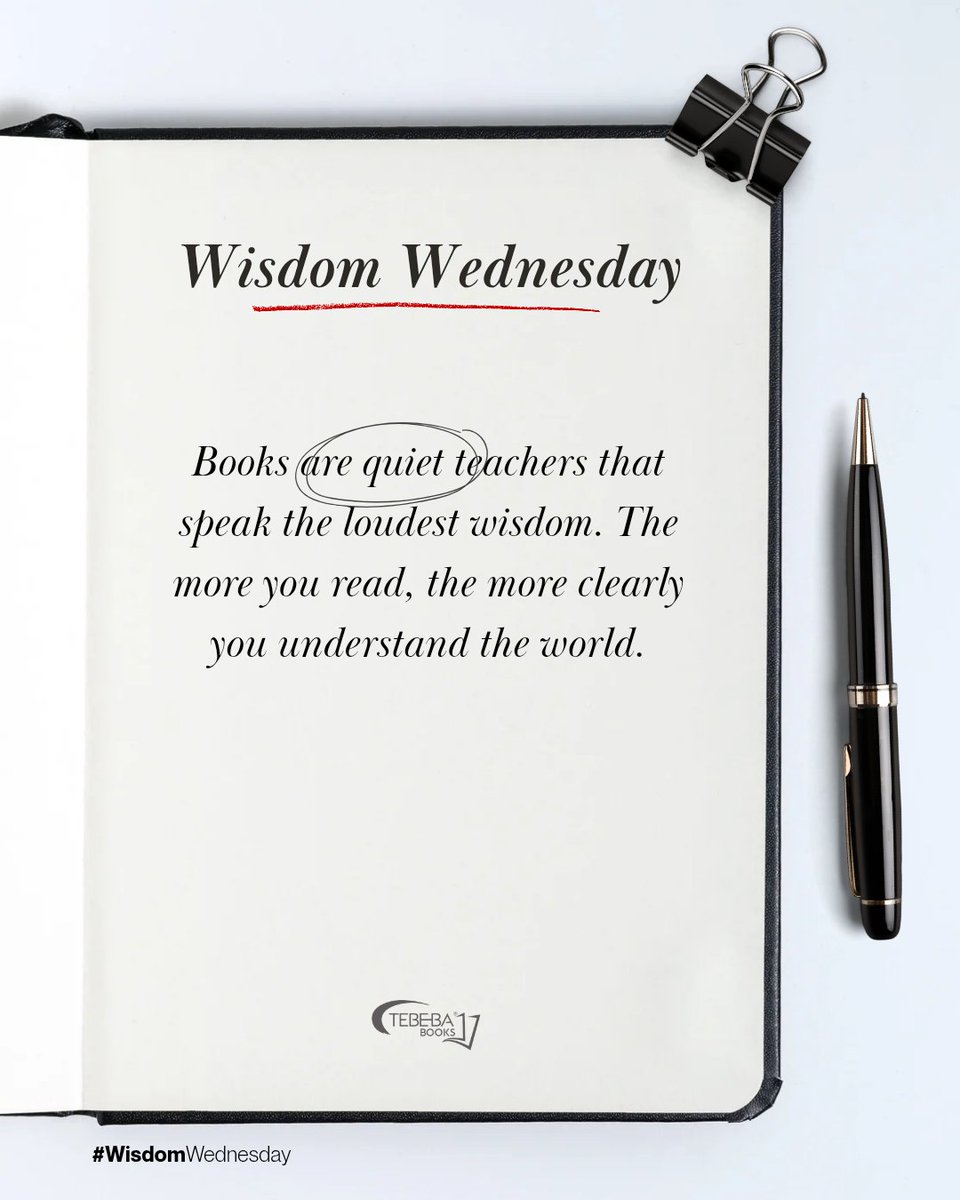 Wisdom Wednesday
Books are quiet teachers that
speak the loudest wisdom. The
more you read, the more clearly
you understand the world.
TEBEBA®
BOOKS
#WisdomWednesday